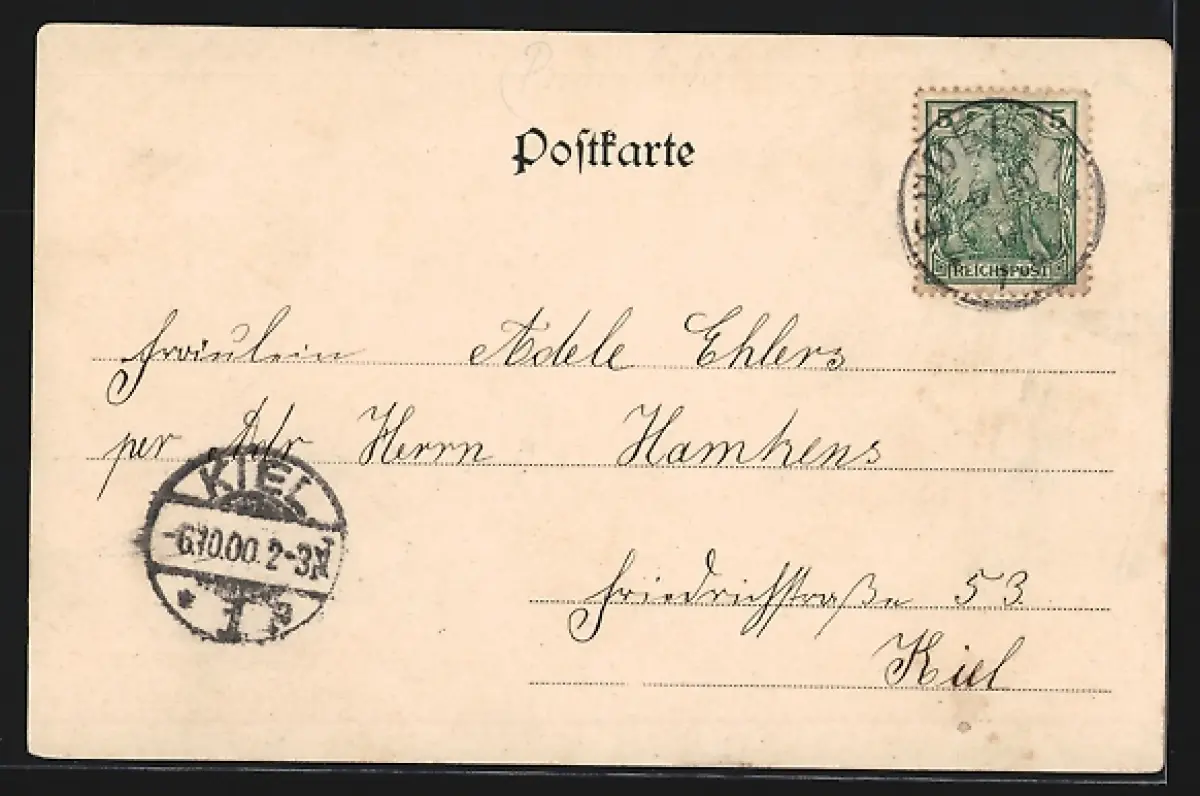 Postkarte
5 5
REICHSPOST
Fräulein Adele Ehlers
per Adr Herrn Hamkens
KIEL
-6.10.00. 2-3N
1
Friedrichstraße 53
Kiel